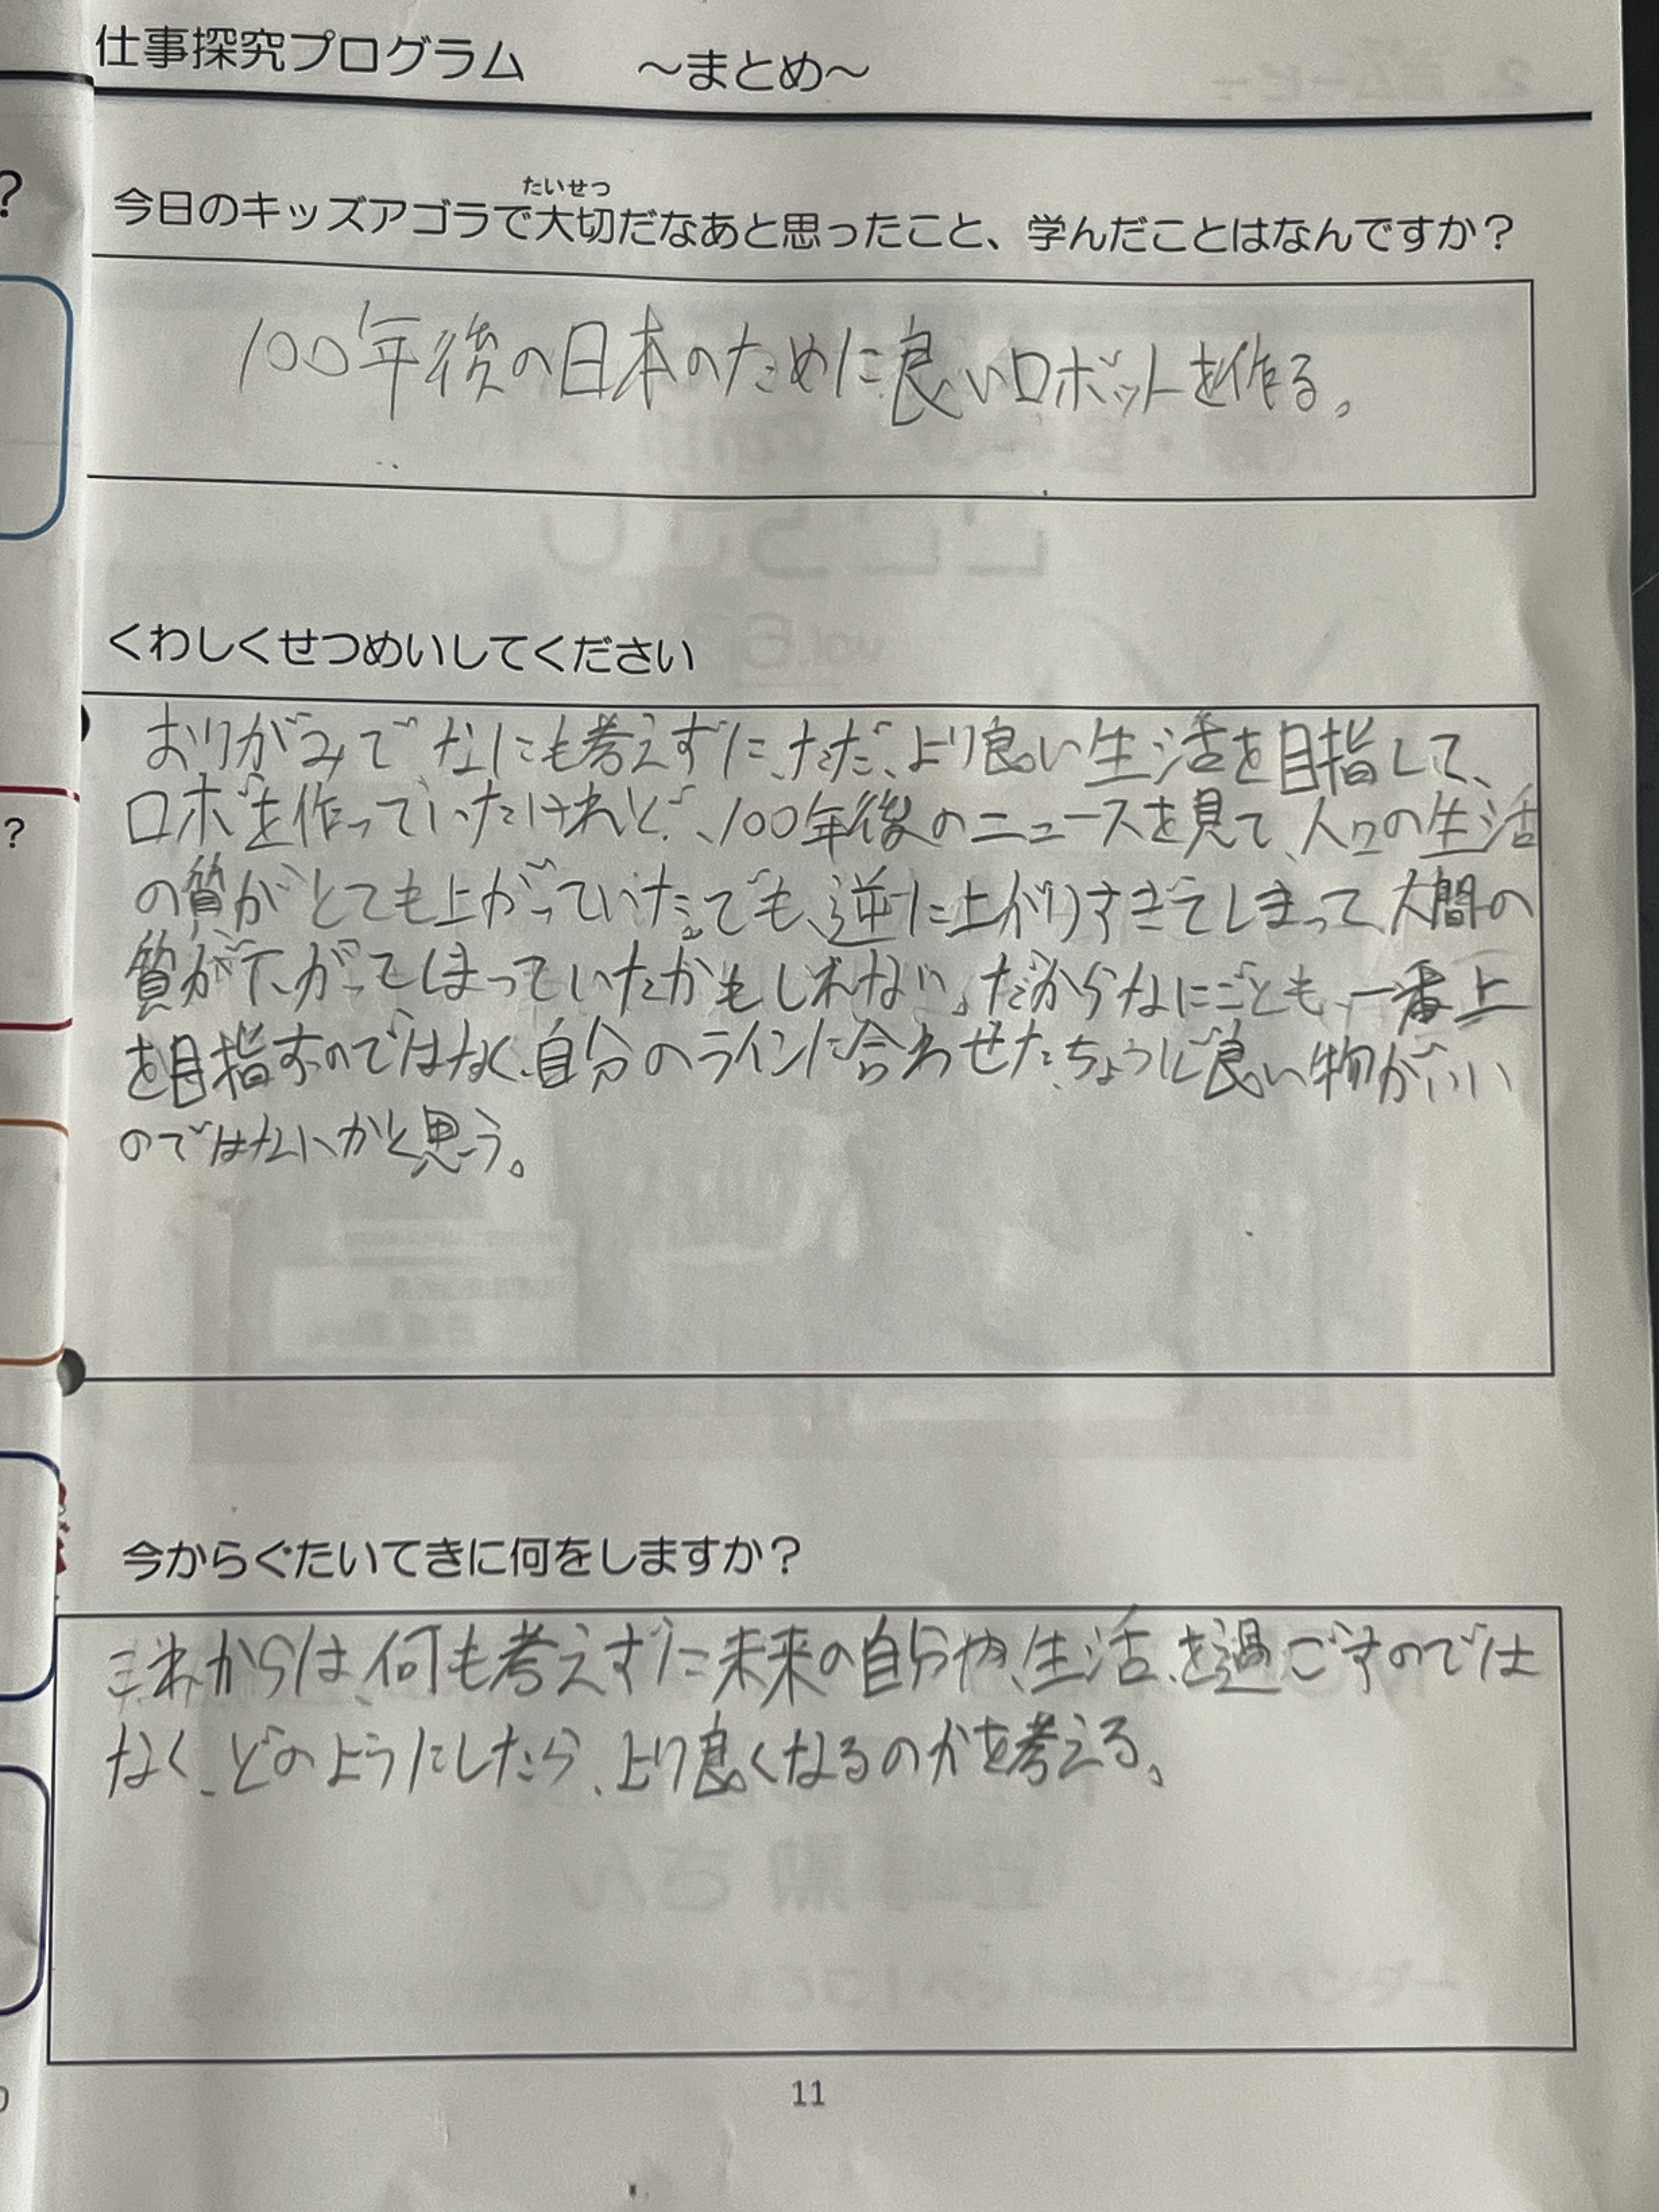 仕事探究プログラム　～まとめ～
たいせつ
今日のキッズアゴラで大切だなあと思ったこと、学んだことはなんですか？
100年後の日本のために良いロボットを作る。
くわしくせつめいしてください
おりがみでなにも考えずに、ただ、より良い生活を目指して、
ロボを作っていたけれど、100年後のニュースを見て、人口の生活
の質がとても上がっていた。でも、逆に上がりすぎてしまって人間の
質が下がってしまっていたかもしれない。だからなにごとも、一番上
を目指すのではなく、自分のラインに合わせた、ちょうど良い物がいい
のではないかと思う。
今からぐたいてきに何をしますか？
これからは、何も考えずに未来の自分や、生活、を過ごすのでは
なく、どのようにしたら、より良くなるのかを考える。
11
?
?